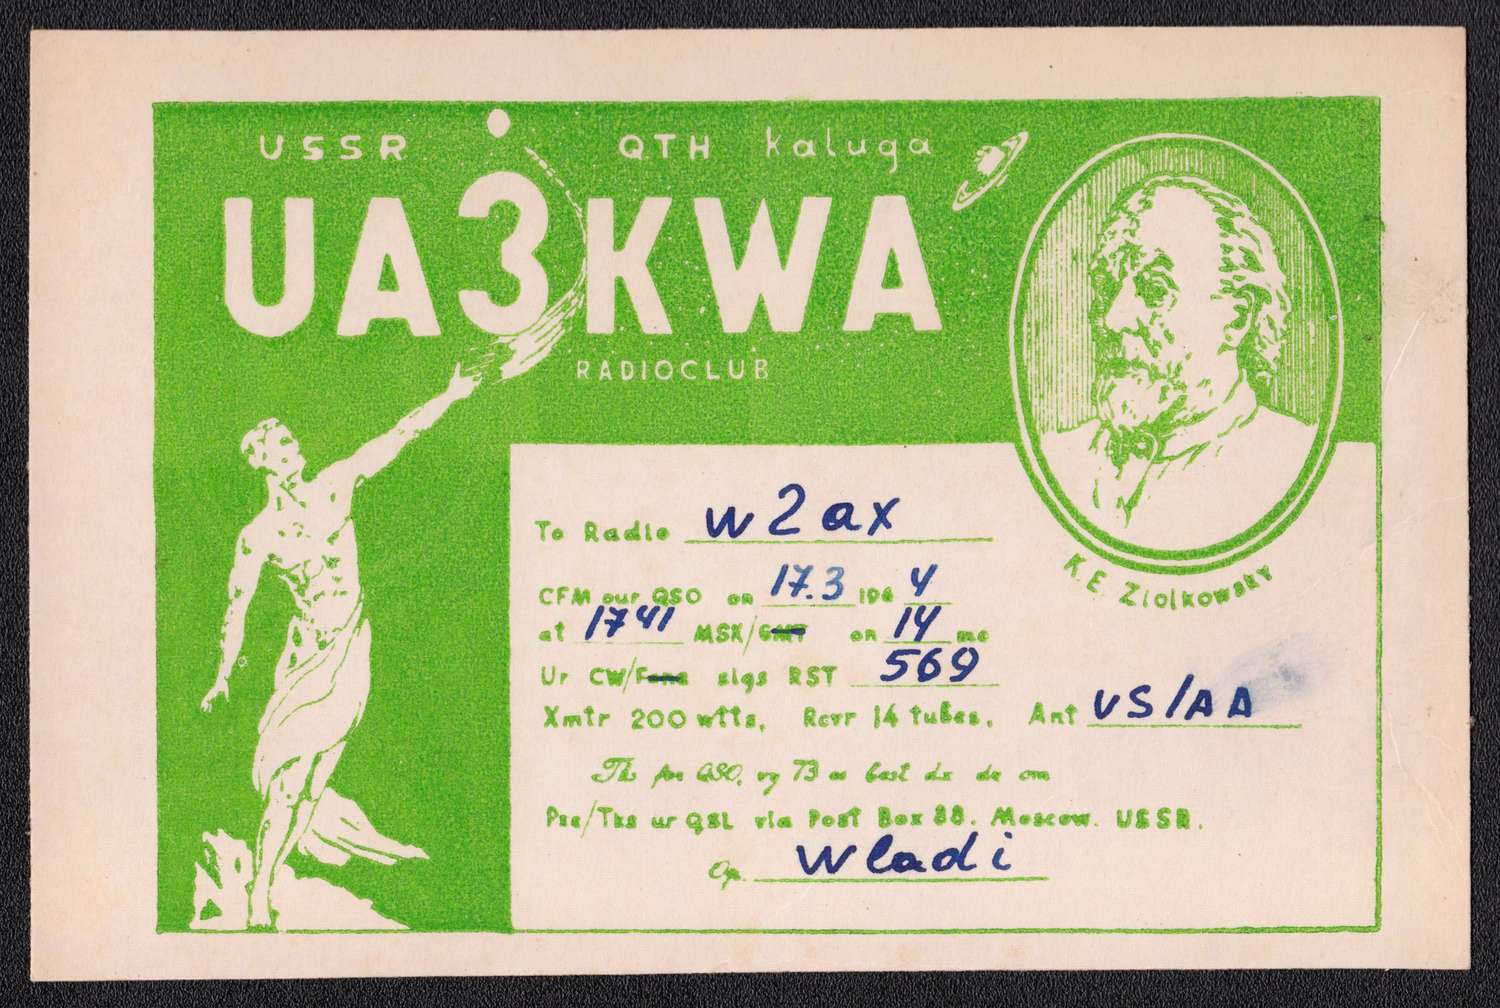 USSR QTH Kaluga
UA3KWA
RADIOCLUB
K.E. Ziolkowsky
To Radio w2ax
CFM our QSO on 17.3 196 4
at 1741 MSK/GMT on 14 mc
Ur CW/Fone sigs RST 569
Xmtr 200 wtts, Rcvr 14 tubes, Ant VS/AA
Tks for QSO, vy 73 es best dx de om
Pse/Tks ur QSL via Post Box 88. Moscow. USSR.
Op. Wladi